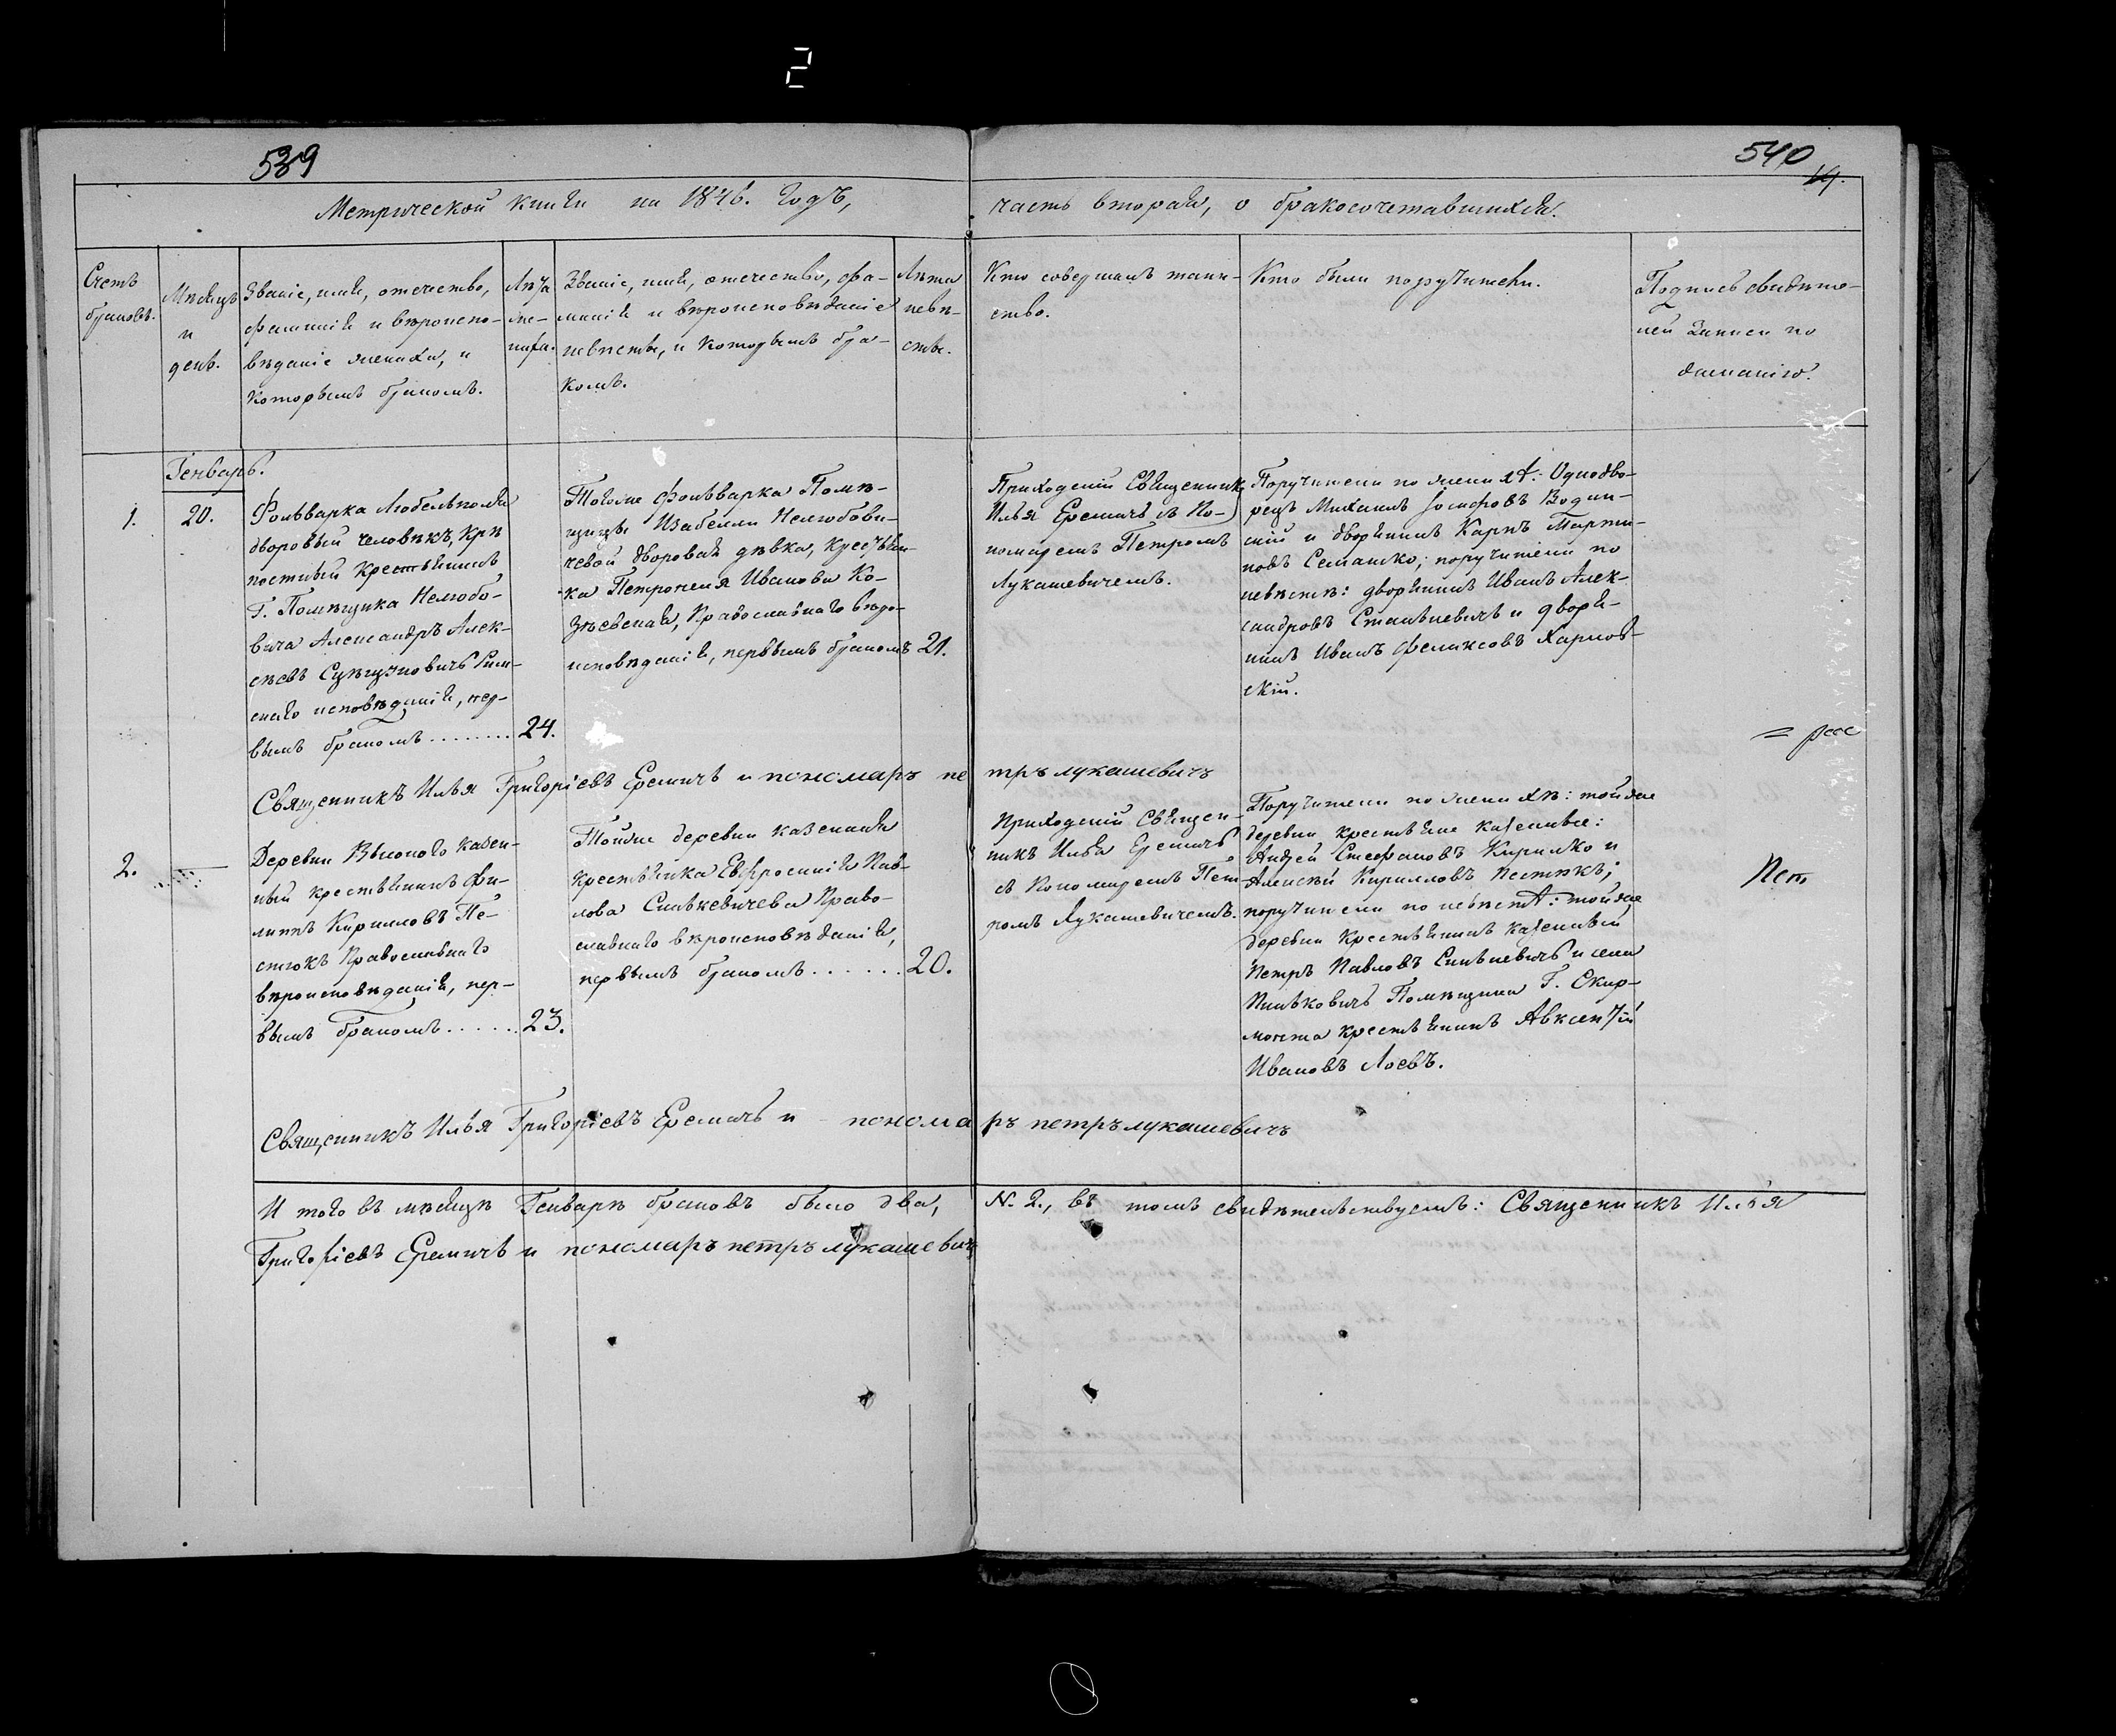 2
539
540
14.
Метрической книги на 1846. годъ,
часть вторая, о бракосочетавшихся.
Счетъ
браковъ.
Мѣсяцъ
и
день.
Званіе, имя, отечество,
фамилія и вѣроиспо-
вѣданіе жениха, и
которымъ бракомъ.
Лѣта
же-
ниха.
Званіе, имя, отечество, фа-
милія и вѣроисповѣданіе
невѣсты, и которымъ бра-
комъ.
Лѣта
невѣ-
сты.
Кто совершалъ таин-
ство.
Кто были поручители.
Подпись свидѣте-
лей записи по
желанію.
Генварь.
1.
20.
Фольварка Любельполя
дворовый человѣкъ, крѣ
постный крестьянинъ
Г. Помѣщика Нелюбо-
вича Александръ Алек-
сѣевъ Рим-
скаго исповѣданія, пер-
вымъ бракомъ ........ 24.
Тогоже фольварка Помѣ-
щицы Изабелли Нелюбови-
чевой дворовая дѣвка, крестьян-
ка Петронеля Иванова Ко-
зѣевская, Православнаго вѣро-
исповѣданія, первымъ бракомъ 21.
Приходскій Священникъ
Илья Еремичъ съ По-
номаремъ Петромъ
Лукашевичемъ.
Поручители по женихѣ: Однодво-
рецъ Михаилъ Іосифовъ Водин-
скій и дворянинъ Карпъ Марти-
новъ Семашко; поручители по
невѣстѣ: дворянинъ Иванъ Алек-
сандровъ Станкевичъ и дворя-
нинъ Иванъ Феликсовъ Харнов-
скій.
Священникъ Илья Григоріевъ Еремичъ и пономаръ петръ лукашевичъ
2.
Деревни Высокого казен-
ный крестьянинъ Фи-
липпъ Кирилловъ Пе-
стюкъ Православнаго
вѣроисповѣданія, пер-
вымъ бракомъ ...... 23.
Тойже деревни казенная
крестьянка Евфросинія Пав-
лова Синкевичева Право-
славнаго вѣроисповѣданія,
первымъ бракомъ ...... 20.
Приходскій Священ-
никъ Илья Еремичъ
съ Пономаремъ Пет-
ромъ Лукашевичемъ.
Поручители по женихѣ: тойже
деревни крестьяне казенные:
Андрей Стефановъ Кирилко и
Алексѣй Кирилловъ Пестюкъ;
поручители по невѣстѣ: тойже
деревни крестьянинъ казенный
Петръ Павловъ Синкевичъ и села
Пиньковичъ Помѣщика Г. Скир-
монта крестьянинъ Авксентій
Ивановъ Лоевъ.
Священникъ Илья Григоріевъ Еремичъ и пономаръ петръ лукашевичъ
И того въ мѣсяцѣ Генварѣ браковъ было два, N. 2., въ томъ свидѣтельствуемъ: Священникъ Илья
Григоріевъ Еремичъ и пономаръ петръ лукашевичъ